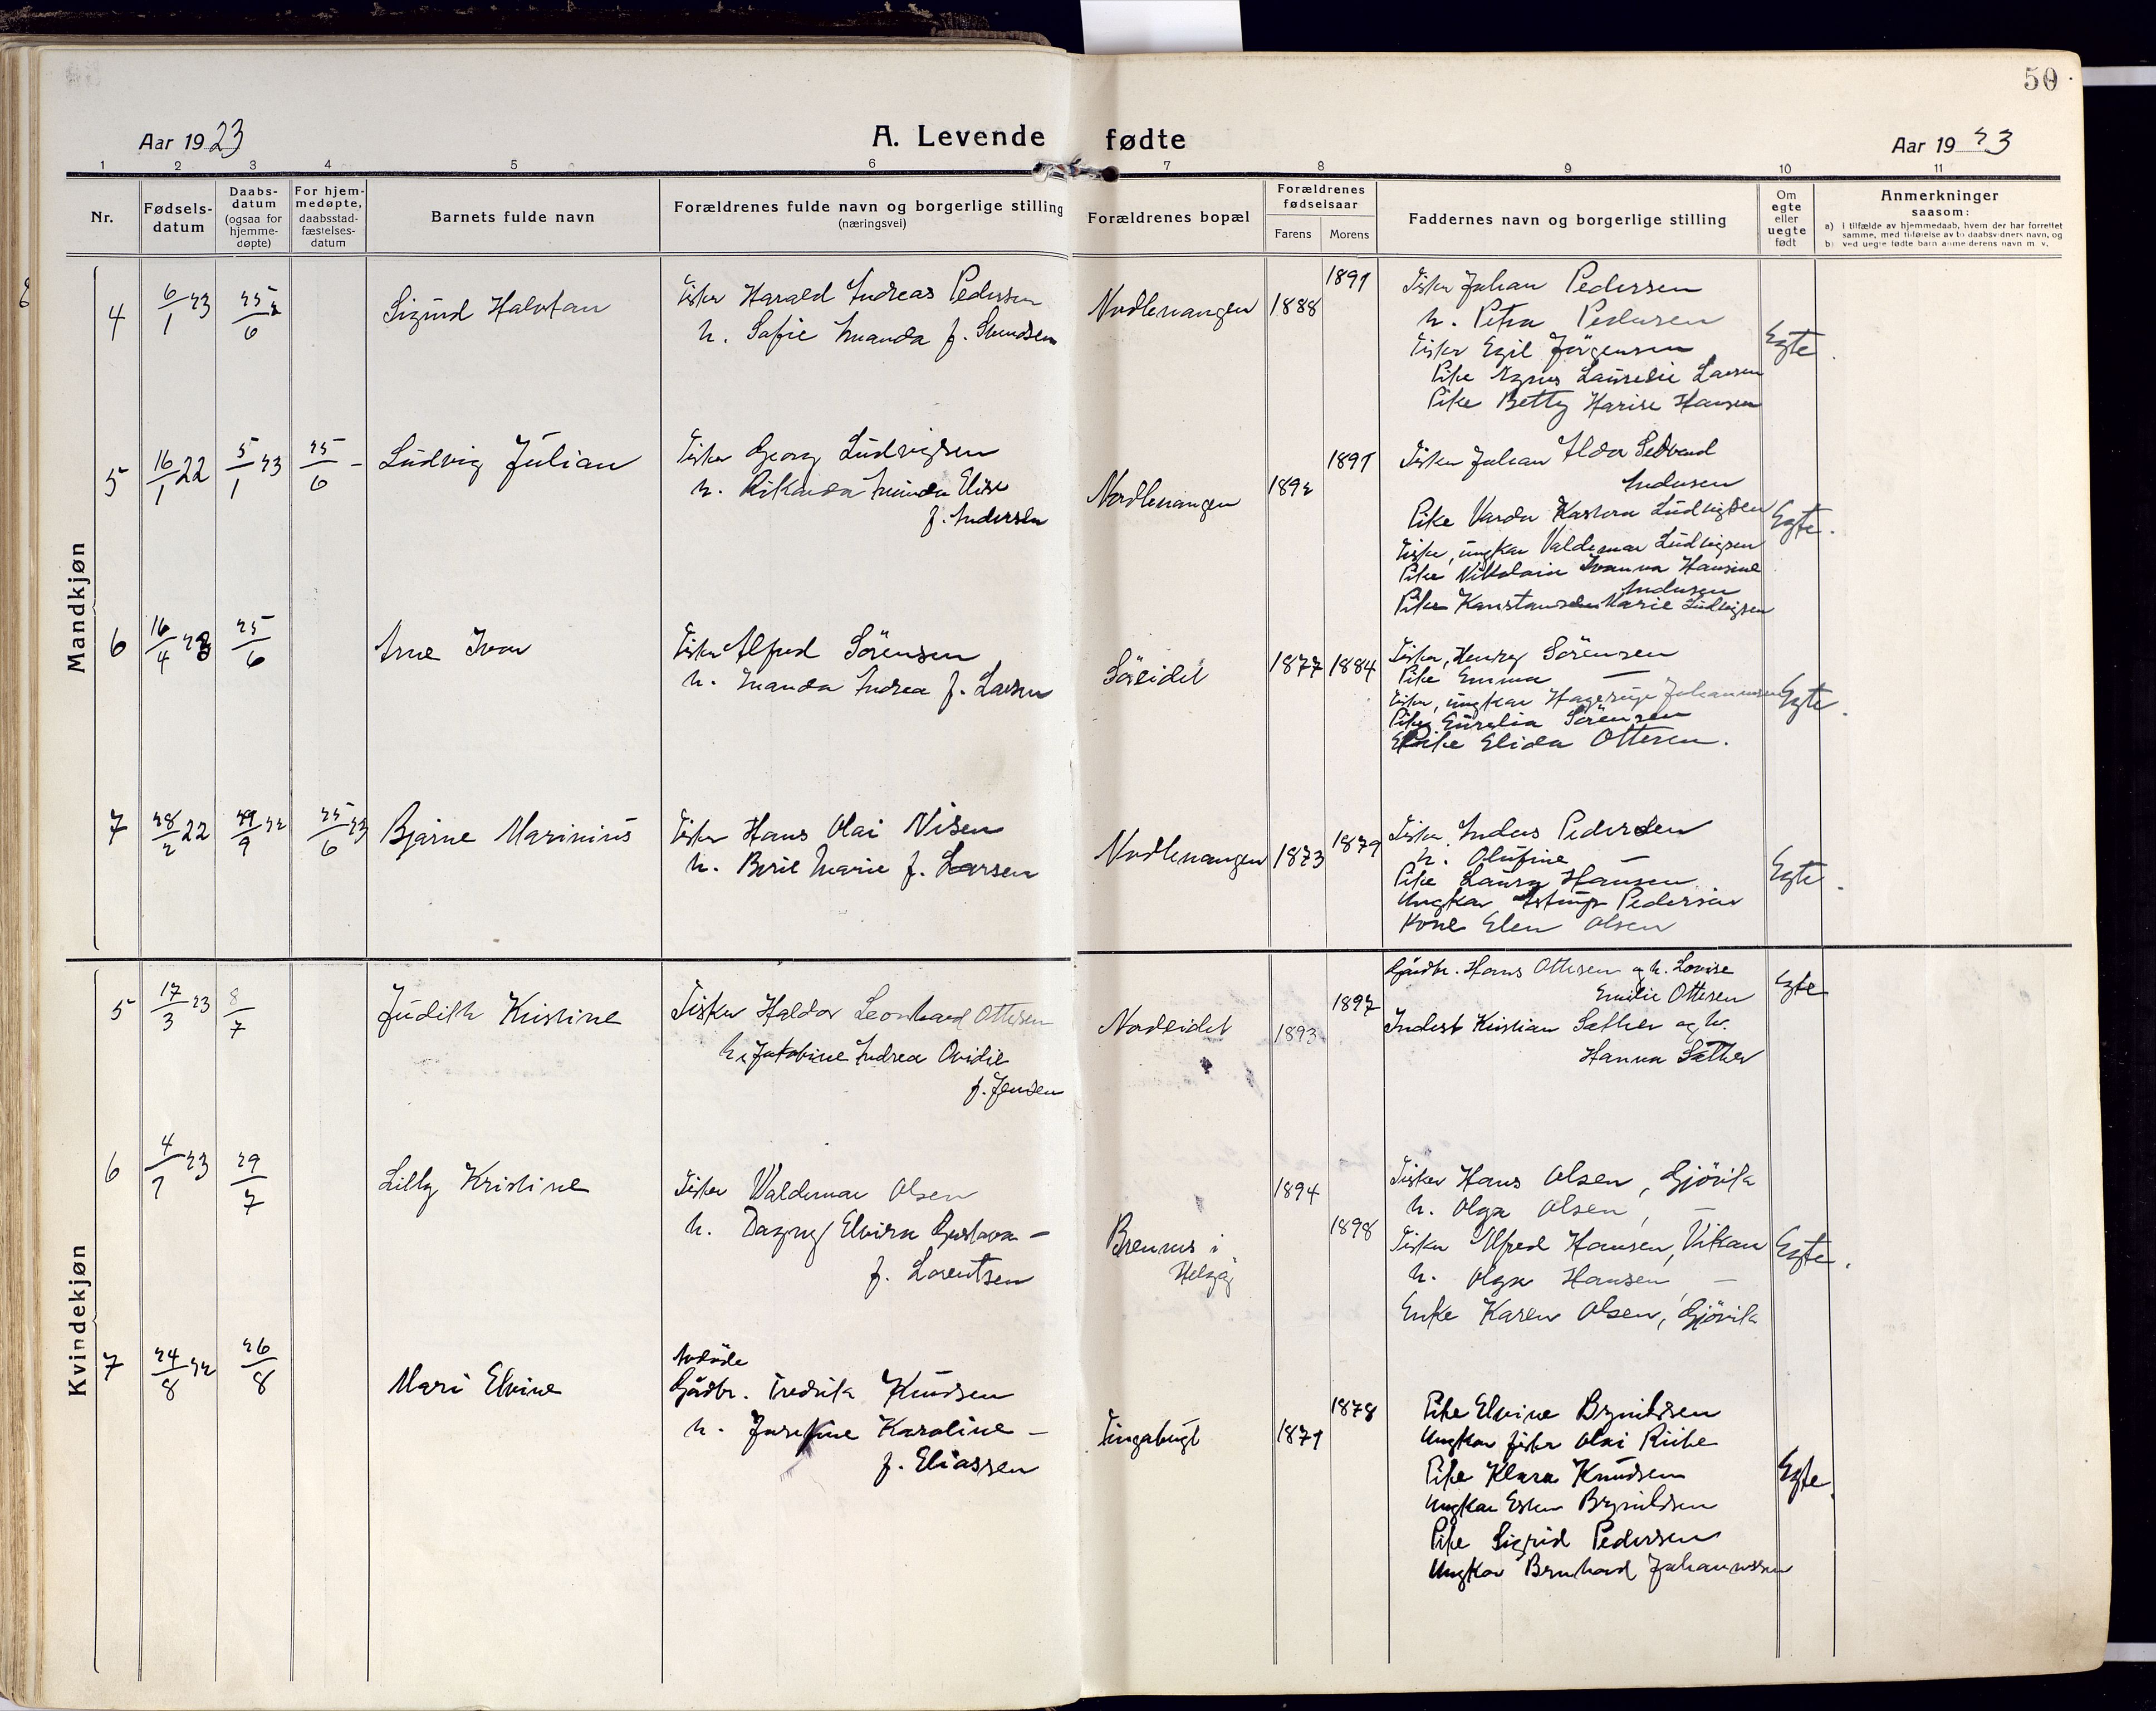 50
Aar 1923
A. Levende fødte
Aar 1923
1 2 3 4 5 6 7 8 9 10 11
Nr.
Fødsels-
datum
Daabs-
datum
(ogsaa for
hjemme-
døpte)
For hjem-
medøpte,
daabsstad-
fæstelses-
datum
Barnets fulde navn
Forældrenes fulde navn og borgerlige stilling
(næringsvei)
Forældrenes bopæl
Forældrenes
fødselsaar
Farens Morens
Faddernes navn og borgerlige stilling
Om
egte
eller
uegte
født
Anmerkninger
saasom:
a) i tilfælde av hjemmedaab, hvem der har forrettet
samme, med tilføielse av to daabsvidners navn, og
b) ved uegte fødte barn anmelderens navn m. v.
Mandkjøn
4 6/1 23 25/6
Fisker Harald Andreas Pedersen
h. Sofie Amanda f.
Nordlenangen 1888 1891
Fisker Johan Pedersen
h. Petra Pedersen
Fisker Egil Jörgensen
Pike Agnes Larsen
Pike Betty Hansen
Egte.
5 16/1 22 5/1 23 25/6 -
Ludvig Julian
Fisker Georg Ludvigsen
h. Rikarda Elise
f. Andersen
Nordlenangen 1892 1891
Fisker Johan Aldor Sedvard
Andersen
Pike Ludvigsen
Fisker, ungkar Valdemar Ludvigsen
Pike Nikolaia Hansine
Andersen
Pike Marie Ludvigsen
Egte.
6 16/4 23 25/6
Arne Ivar
Fisker Alfred Sörensen
h. Amanda Andrea f. Larsen
Söreidet 1877 1884
Fisker, Henrry Sörensen
Pike Emma —
Fisker, ungkar Hagerup Johannesen
Pike Sörensen
Pike Elida Ottesen.
Egte.
7 28/2 22 29/9 22 25/6 23
Bjarne Marinius
Fisker Hans Olai Nisen
h. Berit Marie f. Larsen
Nordlenangen 1873 1879
Fisker Anders Pedersen
h. Olufine —
Pike Laura Hansen
Ungkar Astrup Pedersen
Kone Elen Olsen
Egte.
Kvindekjøn
5 17/3 23 8/7
Judith Kristine
Fisker Haldor Leonhard Ottesen
h. Jakobine Andrea Ovidie
f. Jensen
Nordeidet 1893 1897
Gårdbr. Hans Ottesen og h. Lovise
Emilie Ottesen
Kristian Sæther og h.
Hanna Sæther
Egte
6 4/7 23 29/7
Lilly Kristine
Fisker Valdemar Olsen
h. Dagny Elvira Gustava —
f. Lorentsen
i
Helgøy
1894 1898
Fisker Hans Olsen, Gjövik
h. Olga Olsen, —
Fisker Alfred Hansen, Vikan
h. Olga Hansen, —
Enke Karen Olsen, Gjövik
Egte.
7 24/8 22 26/8
Mari Elvine
Avdöde
Gårdbr. Fredrik Knudsen
h. Josefine Karoline —
f. Eliassen
1871 1878
Pike Elvine Brynildsen
Ungkar fisker Olai
Pike Klara Knudsen
Ungkar Brynildsen
Pike Sigrid Pedersen
Ungkar Bernhard Johannessen
Egte.